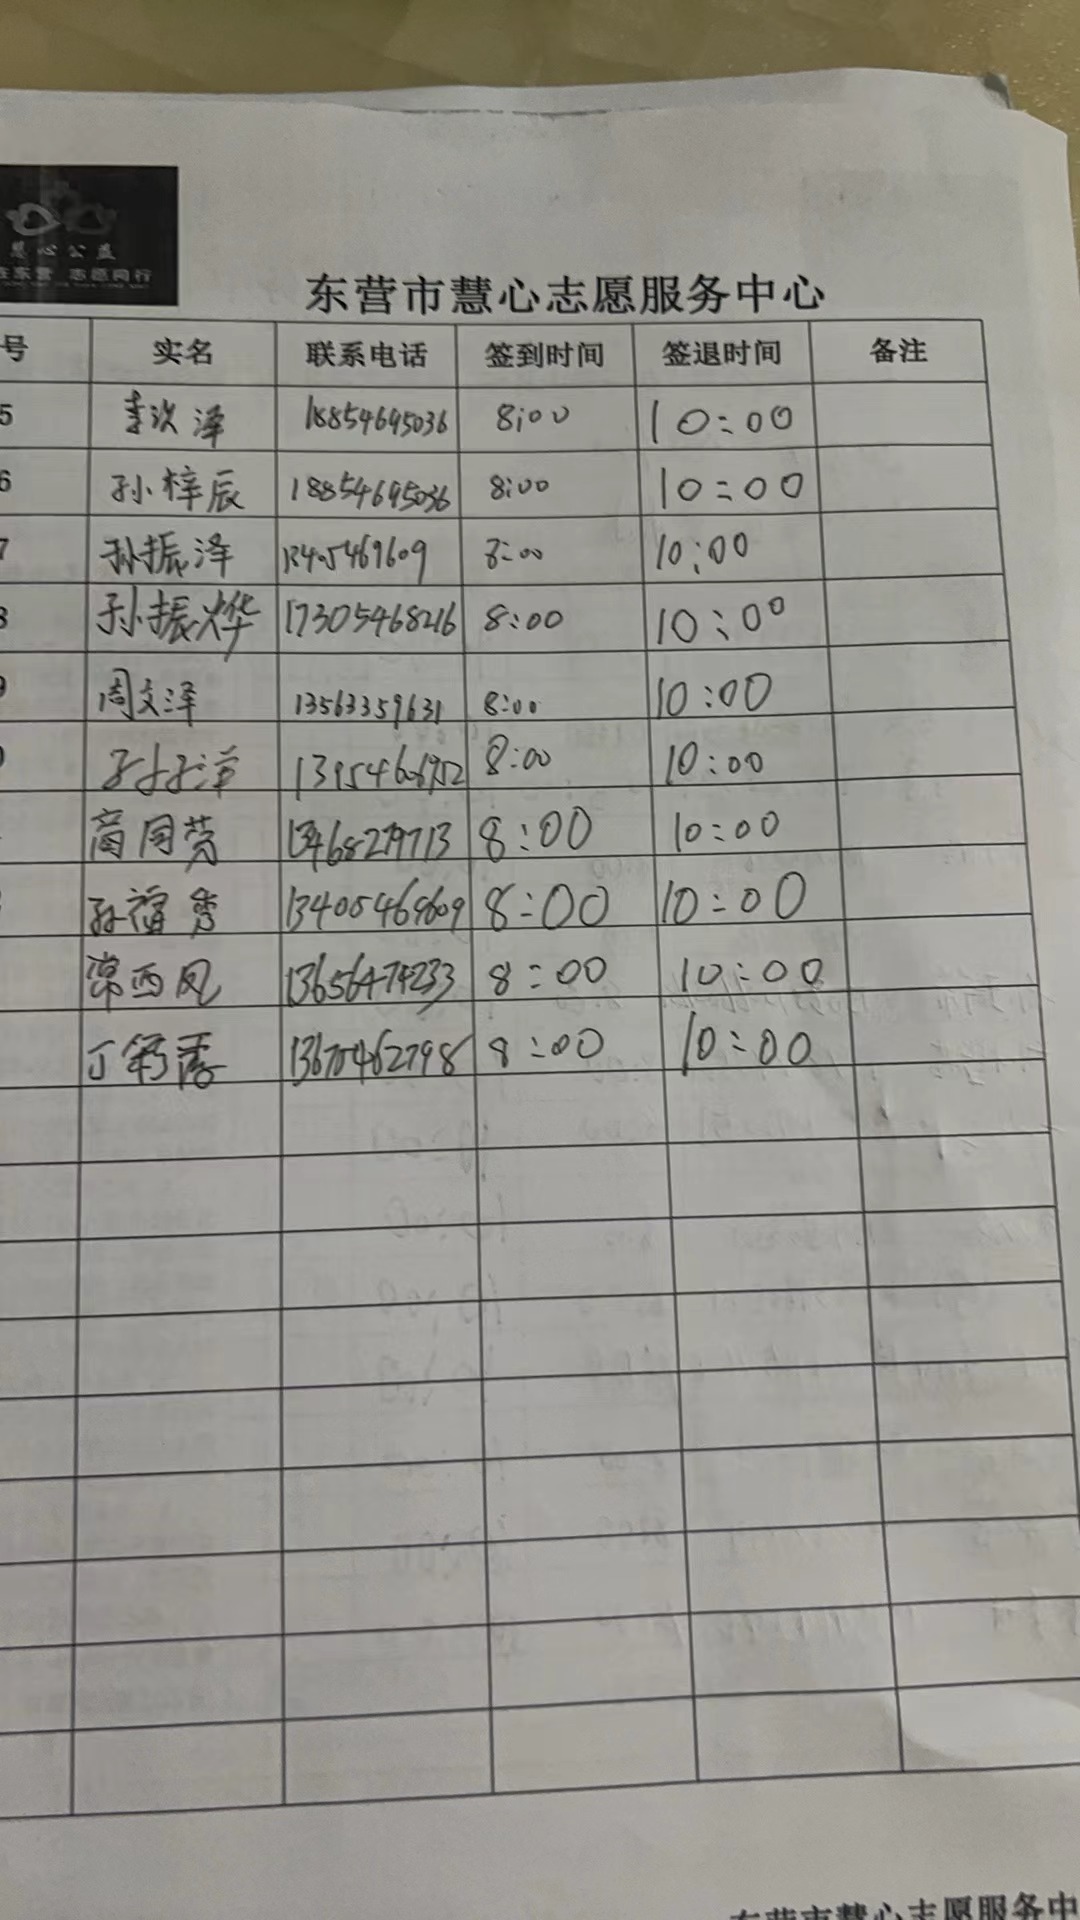 慧心公益
在东营 志愿同行
东营市慧心志愿服务中心
号 实名 联系电话 签到时间 签退时间 备注
5 李洪泽 18854695036 8:00 10:00
6 孙梓辰 18854695036 8:00 10:00
7 孙振泽 13405469609 8:00 10:00
8 孙振烨 17305468216 8:00 10:00
9 周文泽 13563359631 8:00 10:00
0 洋 8:00 10:00
商同芳 13468279713 8:00 10:00
孙福秀 13405469609 8:00 10:00
常西凤 13656474233 8:00 10:00
丁 秀 13675462798 8:00 10:00
东营市慧心志愿服务中